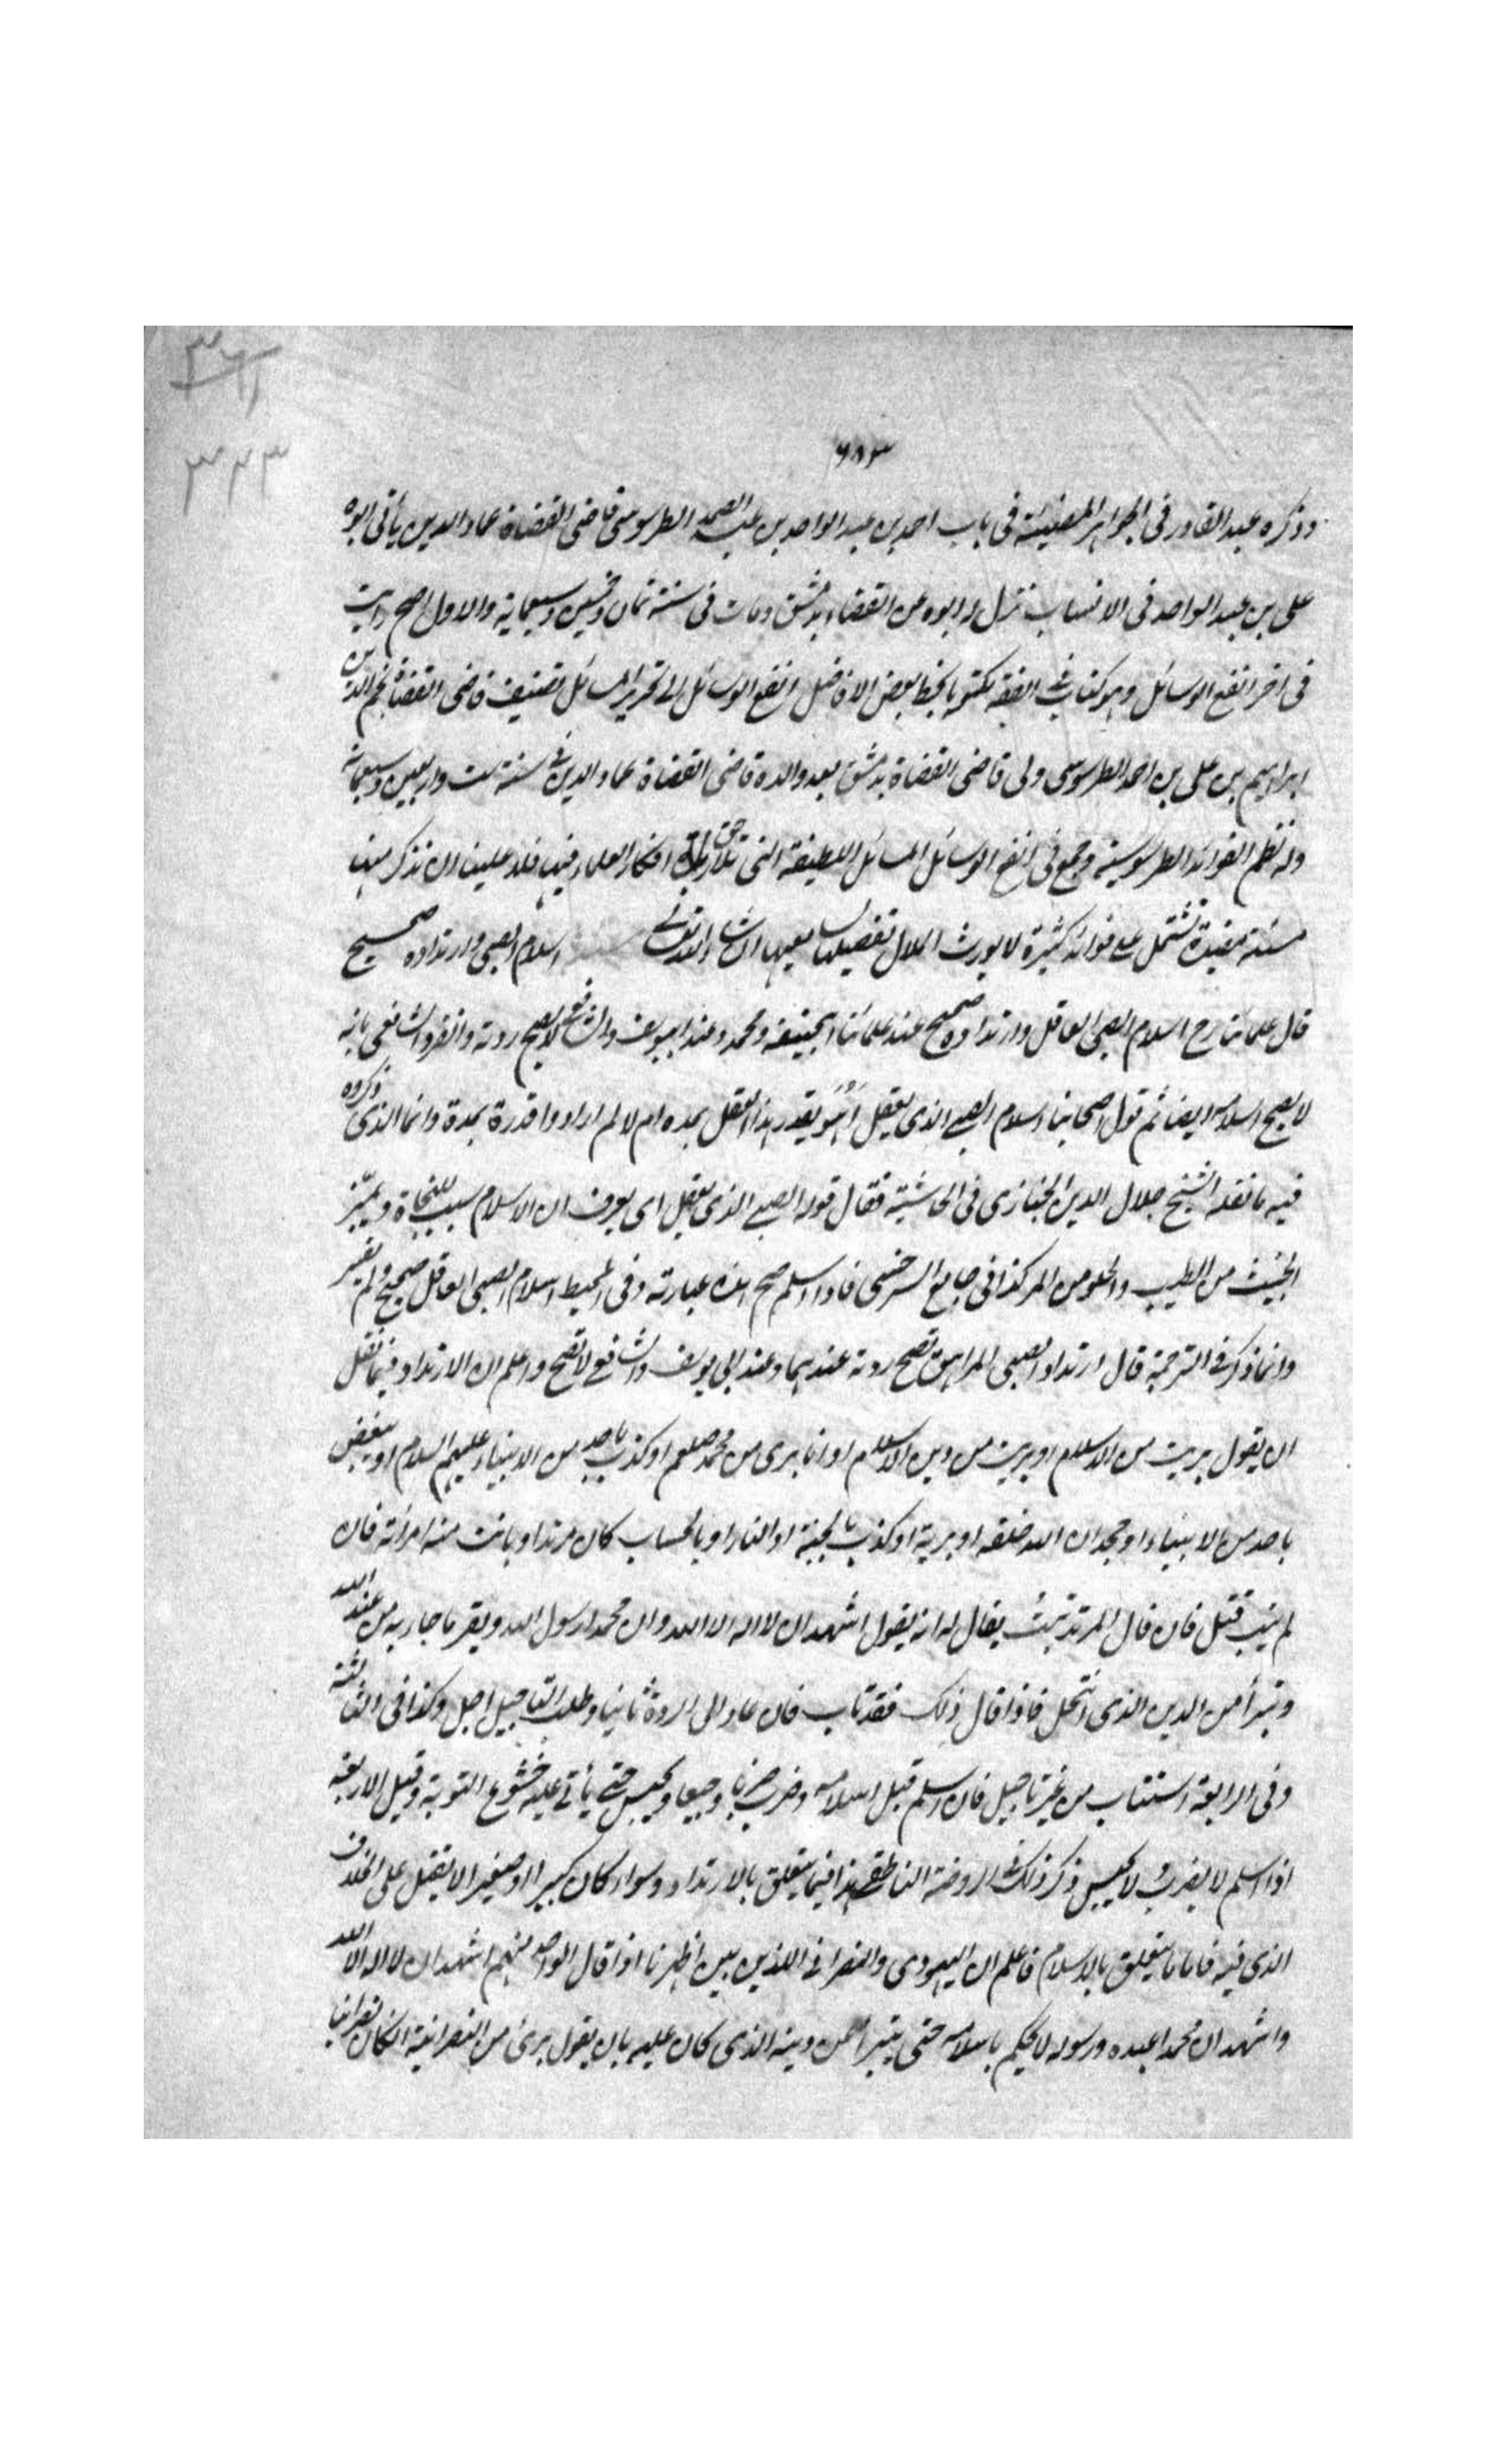 ٣٦١
٣٢٣
٦٨٣
وذكره عبد القادر فى الجواهر المضيئة فى باب احمد بن عبد الواحد بن عبد الصمد الطرسوسى قاضى القضاة عماد الدين يأتى ابوه
على بن عبد الواحد فى الانساب نزل له ابوه عن القضاء بدمشق ومات فى سنة ثمان وخمسين وسبعماية والاول اصح رايت
فى اخر انفع الوسائل وهو كتاب فى الفقه مكتوبا بخط بعض الافاضل انفع الوسائل الى تحرير المسائل تصنيف قاضى القضاة نجم الدين
ابراهيم بن على بن احمد الطرسوسى ولى قاضى القضاة بدمشق بعد والده قاضى القضاة عماد الدين فى سنة ست واربعين وسبعمائة
وله نظم الفوائد الطرسوسية وجمع فى انفع الوسائل المسائل اللطيفة التى افكار العلماء فيها فلا علينا ان نذكر منها
مسئلة مفيدة تشتمل على فوائد كثيرة لا يورث الملال تفصيلها لسامعيها ان شاء الله تعالى اسلام الصبى وارتداده صحيح
قال علمائنا رح اسلام الصبى العاقل وارتداده صحيح عند علمائنا ابيحنيفه ومحمد وعند ابييوسف والشافعى لا يصح ردته وانفرد الشافعى بانه
لا يصح اسلامه ايضا ثم قول اصحابنا اسلام الصبى الذى يعقل أهو يقدر هذا العقل بمدة ام لا لم ار احدا قدره بمدة وانما الذى ذكروه
فيه ما نقله الشيخ جلال الدين الخبازى فى الحاشية فقال قوله الصبى الذى يعقل اى يعرف ان الاسلام سبب للنجاة ويميز
الخبيث من الطيب والحلو من المر كذا فى جامع السرخسى فاذا اسلم صح هذه عبارته وفى المحيط اسلام الصبى العاقل صحيح ولم يفسر
وانما ذكر فى الترجمة قال ارتداد الصبى المراهق تصح ردته عندهما وعند ابى يوسف والشافعى لا تصح واعلم ان الارتداد فيما نقل
ان يقول بريت من الاسلام او بريت من دين الاسلام او انا برى من محمد صلعم او كذب باحد من الانبياء عليهم السلام او يبغض
باحد من الانبياء او جحد ان الله خلقه او بربه او كذب بالجنة او النار او بالحساب كان مرتدا وبانت منه امراته فان
لم يتب قتل فان قال المرتد تبت يقال له انه يقول اشهد ان لا اله الا الله وان محمدا رسول الله ويقر بما جاء به من عند الله
وتبرأ من الدين الذى انتحل فاذا قال ذلك فقد تاب فان عاد الى الردة ثانيا وطلب التاجيل اجل وكذا فى الثالثة
وفى الرابعة استتاب من غير تاجيل فان اسلم قبل اسلامه وضرب ضربا وجيعا ويحبس حتى يأتى عليه خشوع التوبة وقيل الاربعة
اذا اسلم لا يضرب ولا يحبس ذكر ذلك فى الروضة الناطقى هذا فيما يتعلق بالارتداد وسواء كان كبيرا او صغيرا لا يقتل على الخلاف
الذى فيه فاما ما يتعلق بالاسلام فاعلم ان اليهودى والنصرانى اللذين بين اظهرنا اذا قال الواحد منهم اشهد ان لا اله الا الله
واشهد ان محمدا عبده ورسوله لا يحكم باسلامه حتى يتبرأ من دينه الذى كان عليه بان يقول برئ من النصرانية ان كان نصرانيا